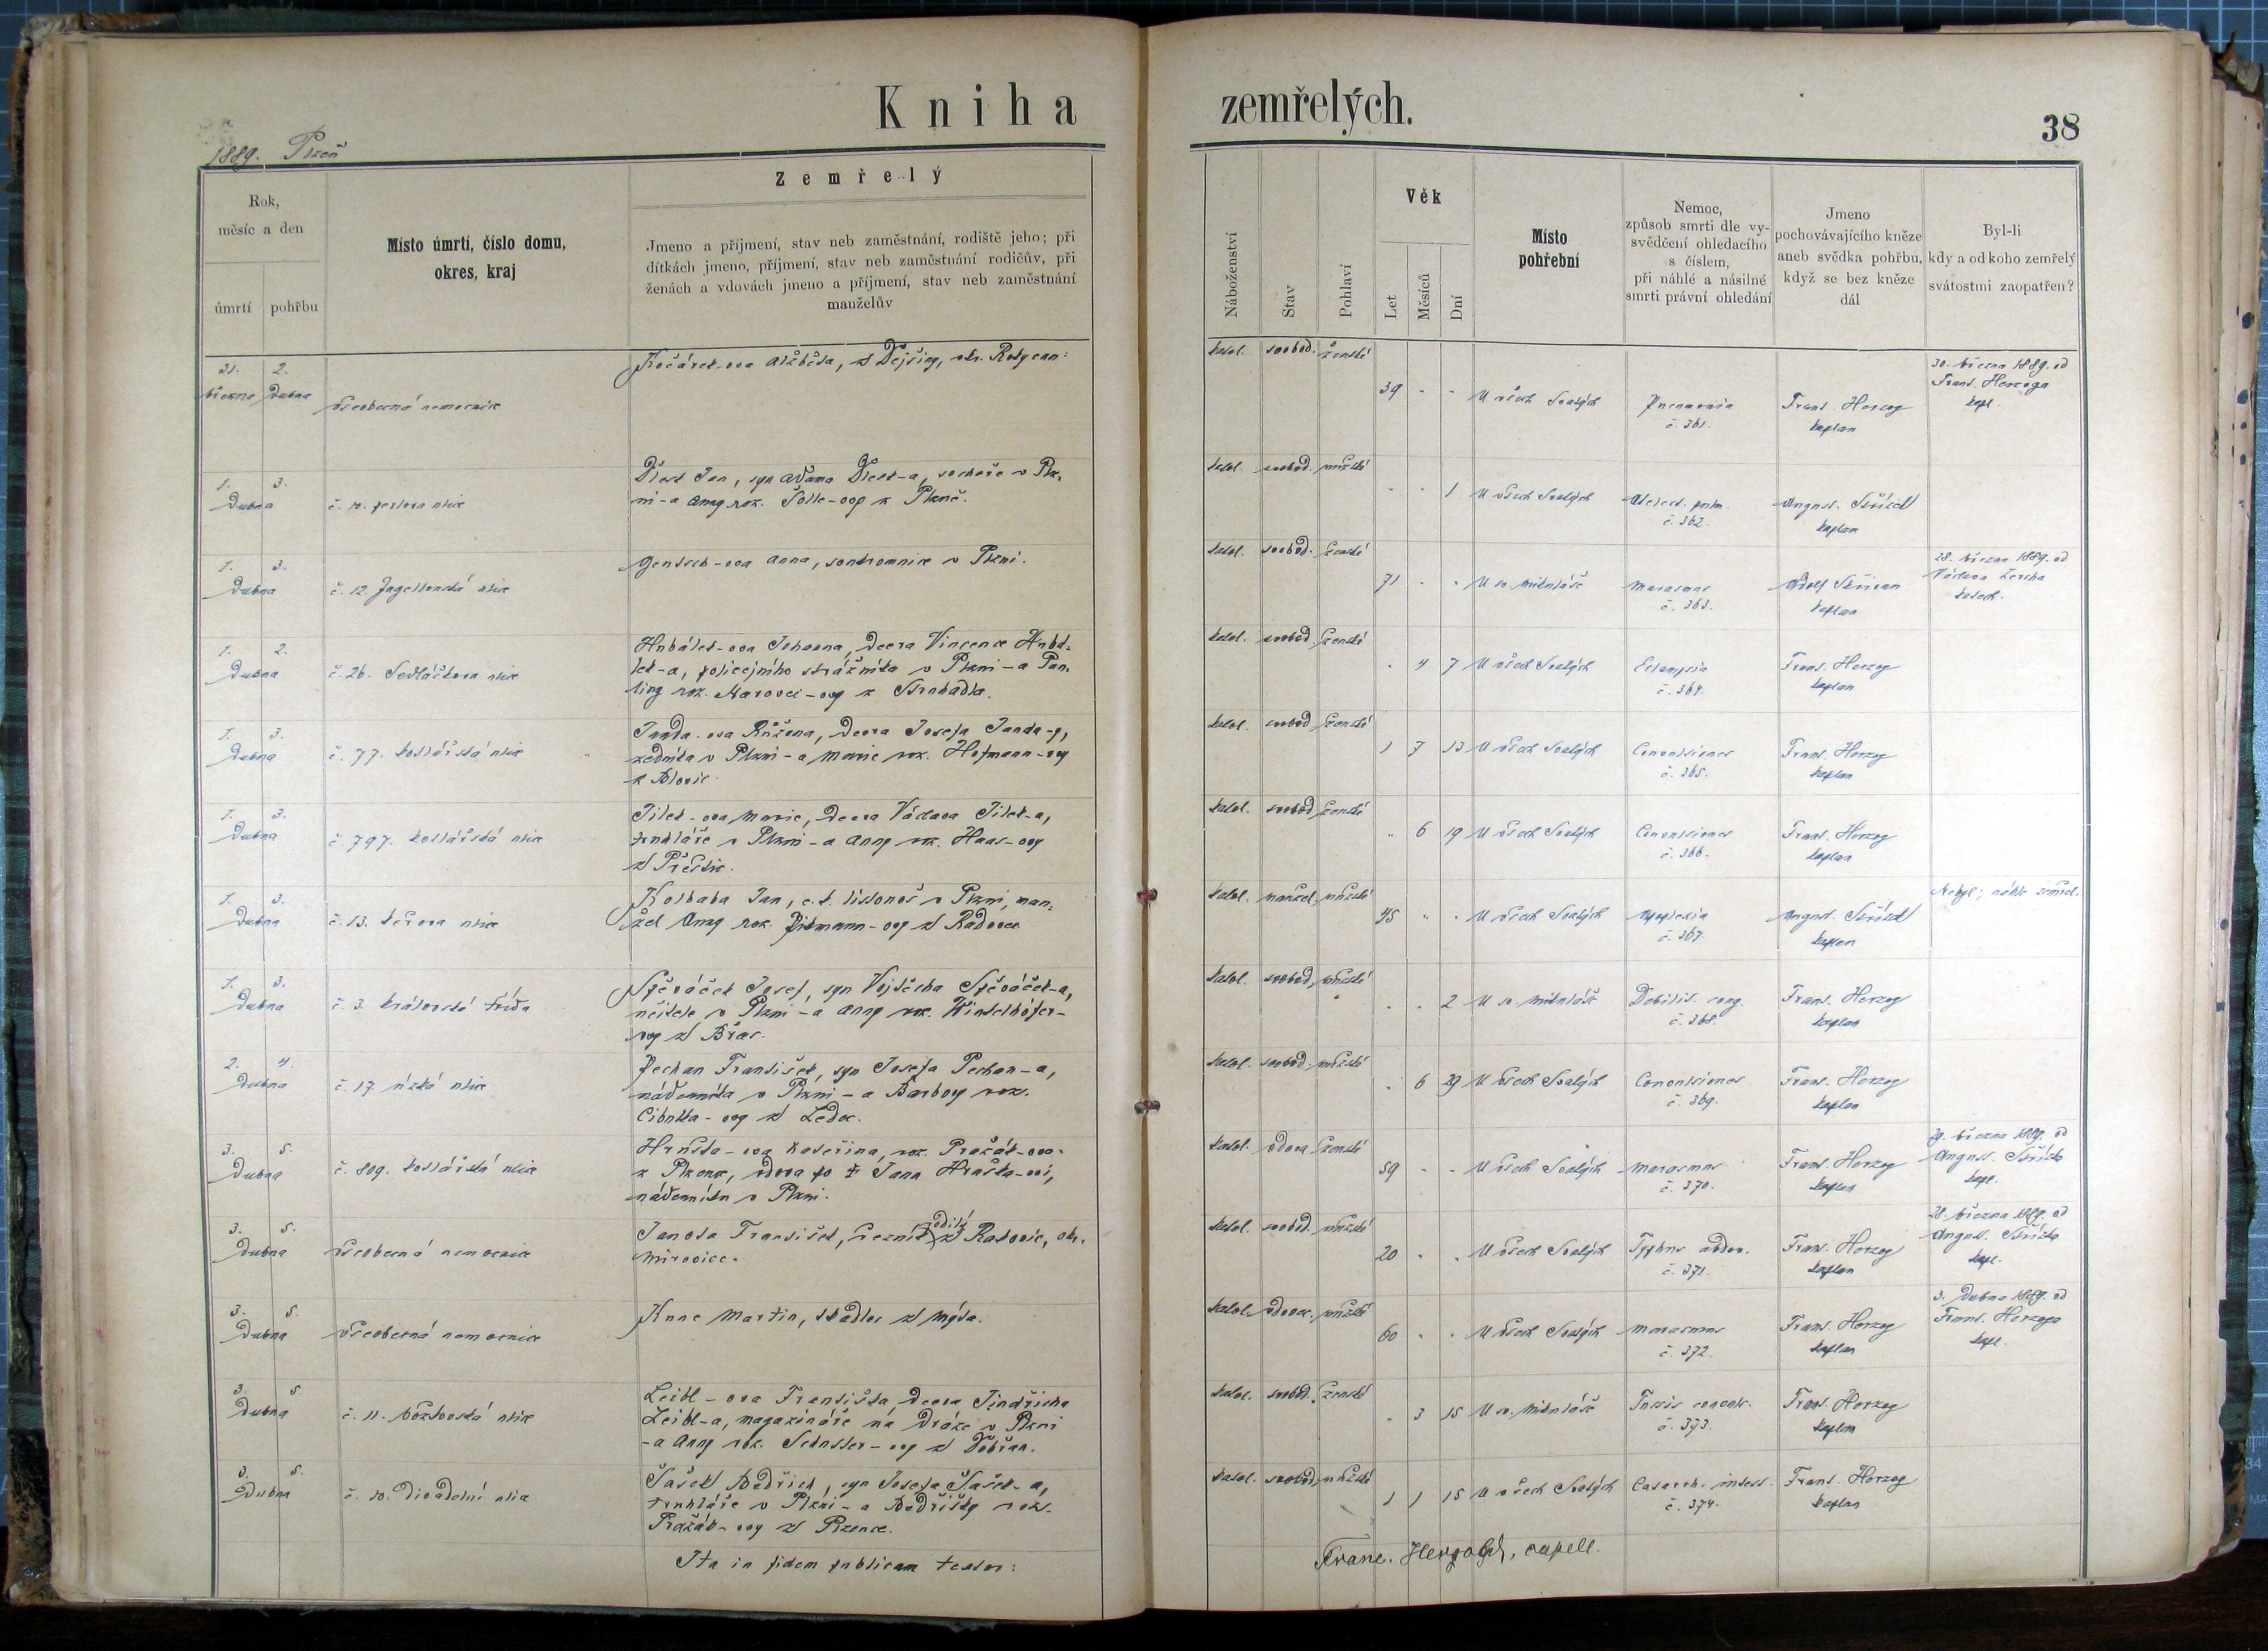 Kniha zemřelých.
38
1889. Plzeň
Rok,
měsíc a den
úmrtí
pohřbu
Místo úmrtí, číslo domu,
okres, kraj
Zemřelý
Jmeno a příjmení, stav neb zaměstnání, rodiště jeho; při
dítkách jmeno, příjmení, stav neb zaměstnání rodičův, při
ženách a vdovách jmeno a příjmení, stav neb zaměstnání
manželův
Náboženství
Stav
Pohlaví
Věk
Let
Měsíců
Dní
Místo
pohřební
Nemoc,
způsob smrti dle vy-
svědčení ohledacího
s číslem,
při náhlé a násilné
smrti právní ohledání
Jmeno
pochovávajícího kněze
aneb svědka pohřbu,
když se bez kněze
dál
Byl-li
kdy a od koho zemřelý
svátostmi zaopatřen?
31. března 2. dubna
všeobecná nemocnice
Kočárek-ova Alžběta, z Dejšiny, okr. Rokycan:
katol. svobod. ženské
39 - - U všech Svatých
Pneumonia
č. 361.
Frant. Herzog
kaplan
30. března 1889. od
Frant. Herzoga
kapl.
1. 3. dubna
č. 10. ulice
Jan, syn Adama v Plz-
ni - a Anny roz.
katol. svobod. mužské
- - 1 U všech Svatých
Atelect. pulm.
č. 362.
August.
kaplan
1. 3. dubna
č. 12. Jagellonská ulice
Anna, soukromnice v Plzni.
katol. svobod. ženské
71 - - U sv. Mikuláše
Marasmus
č. 363.
Adolf
kaplan
28. března 1889. od
Václava
katech.
1. 2. dubna
č. 26. Sedláčkova ulice
Hubálek-ova Johanna, dcera Vincence Hubá-
lek-a, policejního strážníka v Plzni - a Pau-
liny roz.
katol. svobod. ženské
- 4 7 U všech Svatých
Eclampsia
č. 364.
Frant. Herzog
kaplan
1. 3. dubna
č. 77. kollářská ulice
Janda-ova Růžena, dcera Josefa Janda-y,
zedníka v Plzni - a Marie roz. Hofmann-ovy
z Blovic.
katol. svobod. ženské
1 7 13 U všech Svatých
Convulsiones
č. 365.
Frant. Herzog
kaplan
1. 3. dubna
č. 797. kollářská ulice
Jílek-ova Marie, dcera Václava Jílek-a,
truhláře v Plzni - a Anny roz. Haas-ovy
z Přeštic.
katol. svobod. ženské
- 6 19 U všech Svatých
Convulsiones
č. 366.
Frant. Herzog
kaplan
1. 3. dubna
č. 13. ulice
Kolbaba Jan, c. k. listonoš v Plzni, man-
žel Anny roz. Pitmann-ovy z
katol. manžel. mužské
45 - - U všech Svatých
Apoplexia
č. 367.
August.
kaplan
Nebyl; náhle zemřel.
1. 3. dubna
č. 3. královská třída
Spěváček Josef, syn Vojtěcha Spěváček-a,
učitele v Plzni - a Anny roz. Winkelhöfer-
ovy z Břas.
katol. svobod. mužské
- - 2 U sv. Mikuláše
Debilit. cong.
č. 368.
Frant. Herzog
kaplan
2. 4. dubna
č. 17. úzká ulice
Pechan František, syn Josefa Pechan-a,
nádenníka v Plzni - a Barbory roz.
Cibulka-ovy z Ledec.
katol. svobod. mužské
- 6 29 U všech Svatých
Convulsiones
č. 369.
Frant. Herzog
kaplan
3. 5. dubna
č. 809. kollářská ulice
Hruška-ova Kateřina, roz. Pražák-ova
z Plzence, vdova po † Janu Hruška-ovi,
nádenníku v Plzni.
katol. vdova ženské
59 - - U všech Svatých
Marasmus
č. 370.
Frant. Herzog
kaplan
29. března 1889. od
August.
kapl.
3. 5. dubna
všeobecná nemocnice
Janota František, řezník rodilý z Rakovic, okr.
Mirovice.
katol. svobod. mužské
20 - - U všech Svatých
Typhus abdom.
č. 371.
Frant. Herzog
kaplan
28. března 1889. od
August.
kapl.
3. 5. dubna
všeobecná nemocnice
Martin, sedlák z Mýta.
katol. vdovec. mužské
60 - - U všech Svatých
Marasmus
č. 372.
Frant. Herzog
kaplan
3. dubna 1889. od
Frant. Herzoga
kapl.
3. 5. dubna
č. 11. ulice
Leibl-ova Františka, dcera Jindřicha
Leibl-a, magazináře na dráze v Plzni
- a Anny roz. Schuster-ovy z Dobřan.
katol. svobod. ženské
- 3 15 U sv. Mikuláše
Tussis convuls.
č. 373.
Frant. Herzog
kaplan
3. 5. dubna
č. 10. divadelní ulice
Šašek Bedřich, syn Josefa Šašek-a,
truhláře v Plzni - a Bedřišky roz.
Pražák-ovy z Plzence.
katol. svobod. mužské
1 1 15 U všech Svatých
Catarrh. intest.
č. 374.
Frant. Herzog
kaplan
Ita in fidem publicam testor:
Franc. Herzog, capell.